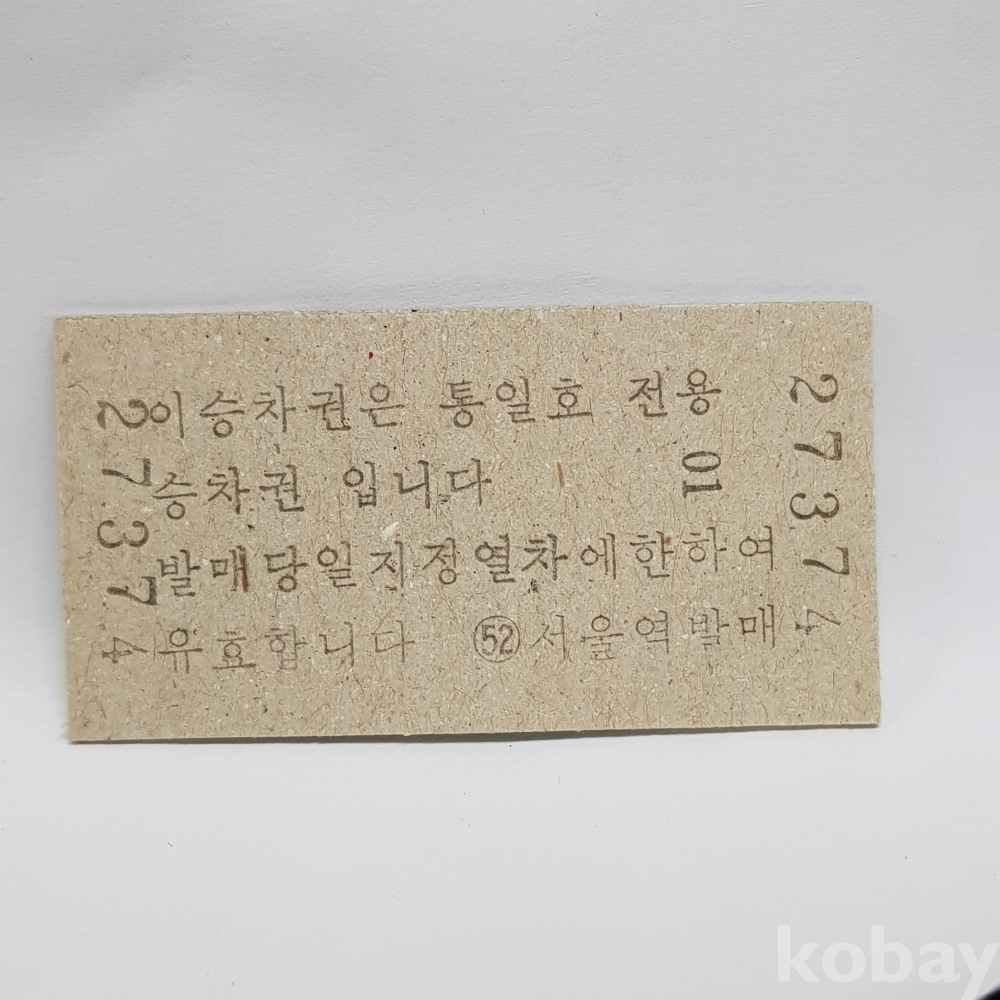 이승차권은 통일호 전용
승차권 입니다
발매당일지정열차에한하여
유효합니다 52 서울역발매
27374
01
27374
kobay